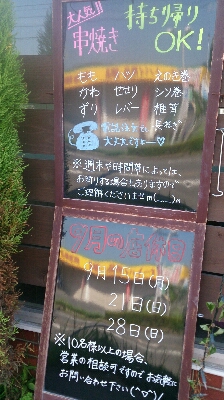 大人気!!
串焼き
持ち帰り
OK!
もも ハツ えのき巻
かわ せせり シソ巻
ずり レバー 椎茸
長ねぎ
大丈夫ですよー♡
※週末や時間帯によっては、
お断りする場合もありますので
ご理解くださいませm(__)m
9月の店休日
9月15日(月)
21日(日)
28日(日)
※10名様以上の場合、
営業の相談可ですのでお気軽に
お問い合わせ下さい(^▽^)/